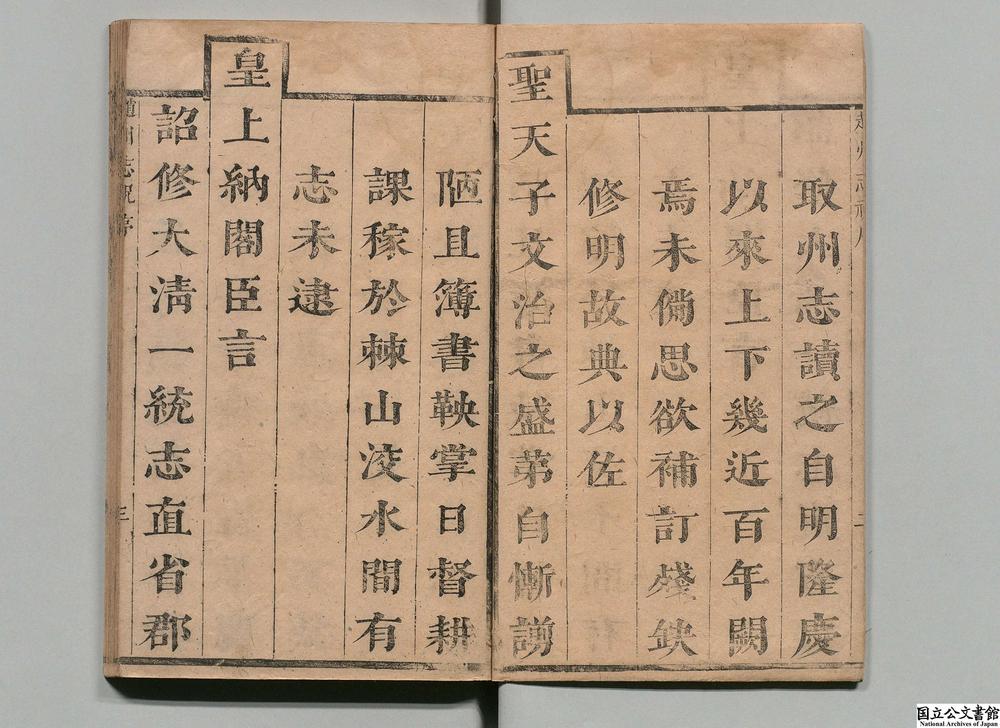 取州志讀之自明隆慶
以來上下幾近百年闕
焉未備思欲補訂殘缺
修明故典以佐
聖天子文治之盛苐自慚謭
陋且簿書鞅掌日督耕
課稼於棘山洨水間有
志未逮
皇上納閣臣言
詔修大淸一統志直省郡
国立公文書館
National Archives of Japan